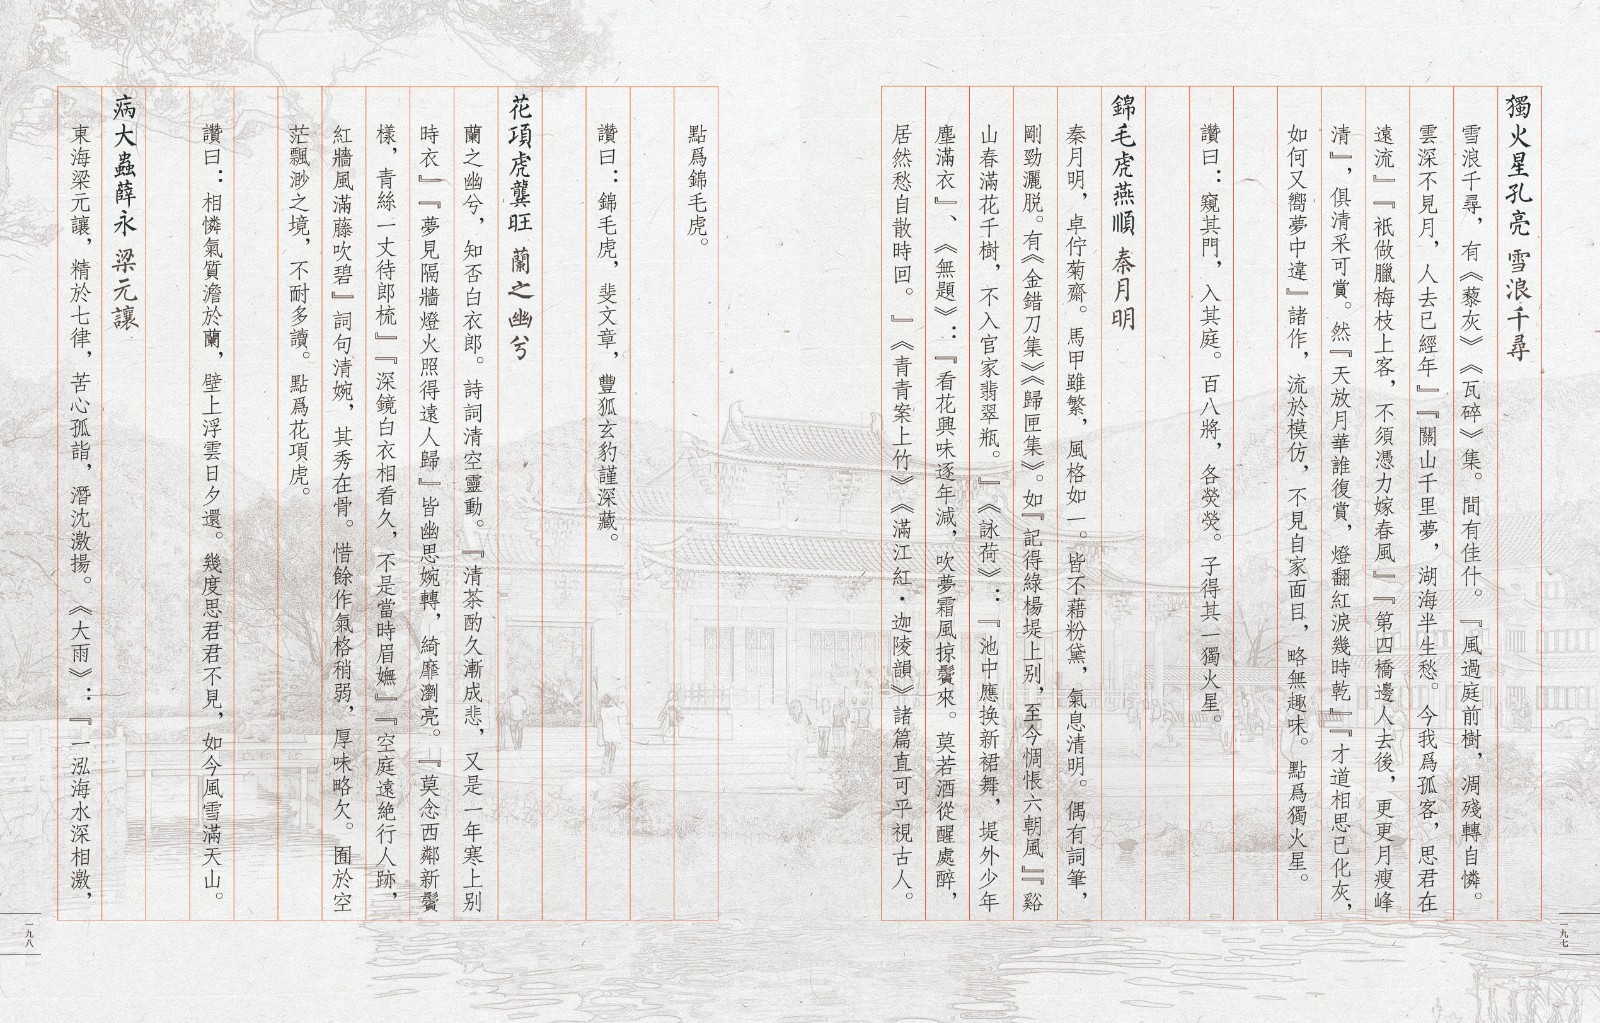 獨火星孔亮 雪浪千尋
雪浪千尋，有《藜灰》《瓦碎》集。間有佳什。『風過庭前樹，凋殘轉自憐。
雲深不見月，人去已經年』『關山千里夢，湖海半生愁。今我爲孤客，思君在
遠流』『祇做臘梅枝上客，不須憑力嫁春風』『第四橋邊人去後，更更月瘦峰
清』，俱清采可賞。然『天放月華誰復賞，燈翻紅淚幾時乾』『才道相思已化灰，
如何又嚮夢中違』諸作，流於模仿，不見自家面目，略無趣味。點爲獨火星。
讚曰：窺其門，入其庭。百八將，各熒熒。子得其一獨火星。
錦毛虎燕順 秦月明
秦月明，卓佇菊齋。馬甲雖繁，風格如一。皆不藉粉黛，氣息清明。偶有詞筆，
剛勁灑脱。有《金錯刀集》《歸匣集》。如『記得綠楊堤上别，至今惆悵六朝風』『谿
山春滿花千樹，不入官家翡翠瓶。』《詠荷》：『池中應换新裙舞，堤外少年
塵滿衣』、《無題》：『看花興味逐年減，吹夢霜風掠鬢來。莫若酒從醒處醉，
居然愁自散時回。』《青青案上竹》《滿江紅·迦陵韻》諸篇直可平視古人。
點爲錦毛虎。
讚曰：錦毛虎，斐文章，豐狐玄豹謹深藏。
花項虎龔旺 蘭之幽兮
蘭之幽兮，知否白衣郎。詩詞清空靈動。『清茶酌久漸成悲，又是一年寒上别
時衣』『夢見隔牆燈火照得遠人歸』皆幽思婉轉，綺靡瀏亮。『莫念西鄰新鬢
樣，青絲一丈待郎梳』『深鏡白衣相看久，不是當時眉嫵』『空庭遠絶行人跡，
紅牆風滿藤吹碧』詞句清婉，其秀在骨。惜餘作氣格稍弱，厚味略欠。囿於空
茫飄渺之境，不耐多讀。點爲花項虎。
讚曰：相憐氣質澹於蘭，壁上浮雲日夕還。幾度思君君不見，如今風雪滿天山。
病大蟲薛永 梁元讓
東海梁元讓，精於七律，苦心孤詣，潛沈激揚。《大雨》：『一泓海水深相激，
一九七
一九八